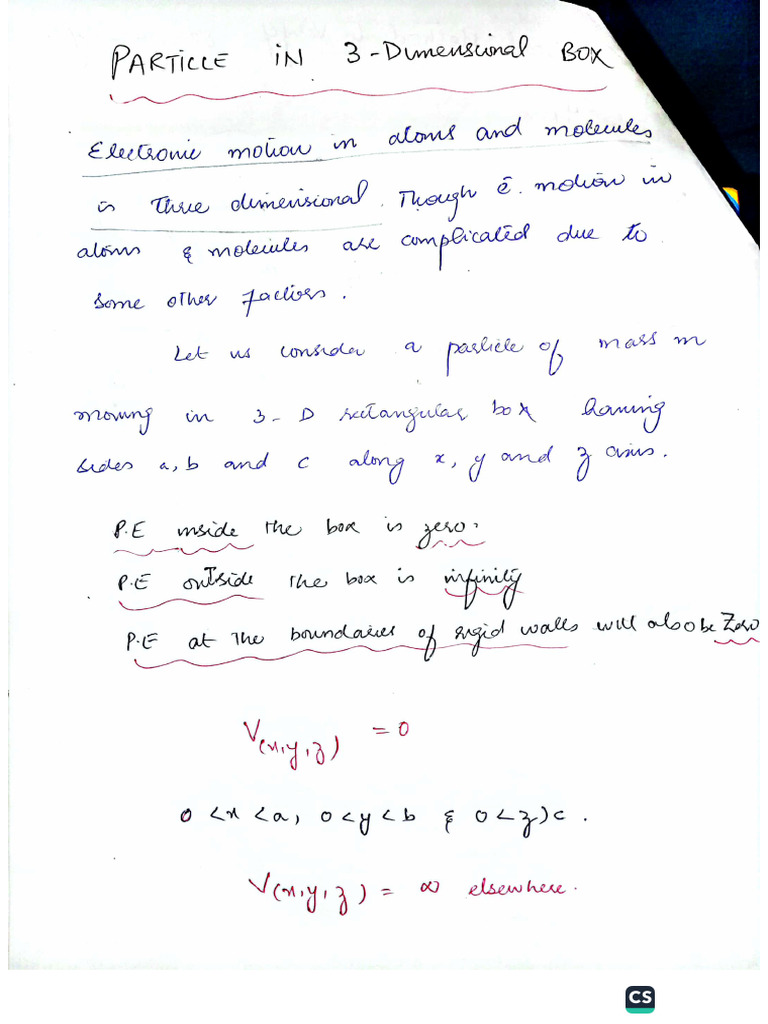 PARTICLE IN 3-Dimensional BOX
Electronic motion in atoms and molecules
is Three dimensional. Though ē motion in
atoms & molecules are complicated due to
some other factors.
Let us consider a particle of mass m
moving in 3-D rectangular box having
sides a, b and c along x, y and z axis.
P.E inside the box is zero.
P.E outside the box is infinity
P.E at the boundaries of rigid walls will also be Zero
V(x,y,z) = 0
0 <x <a, 0<y<b & 0<z)c.
V(x,y,z) = ∞ elsewhere.
CS